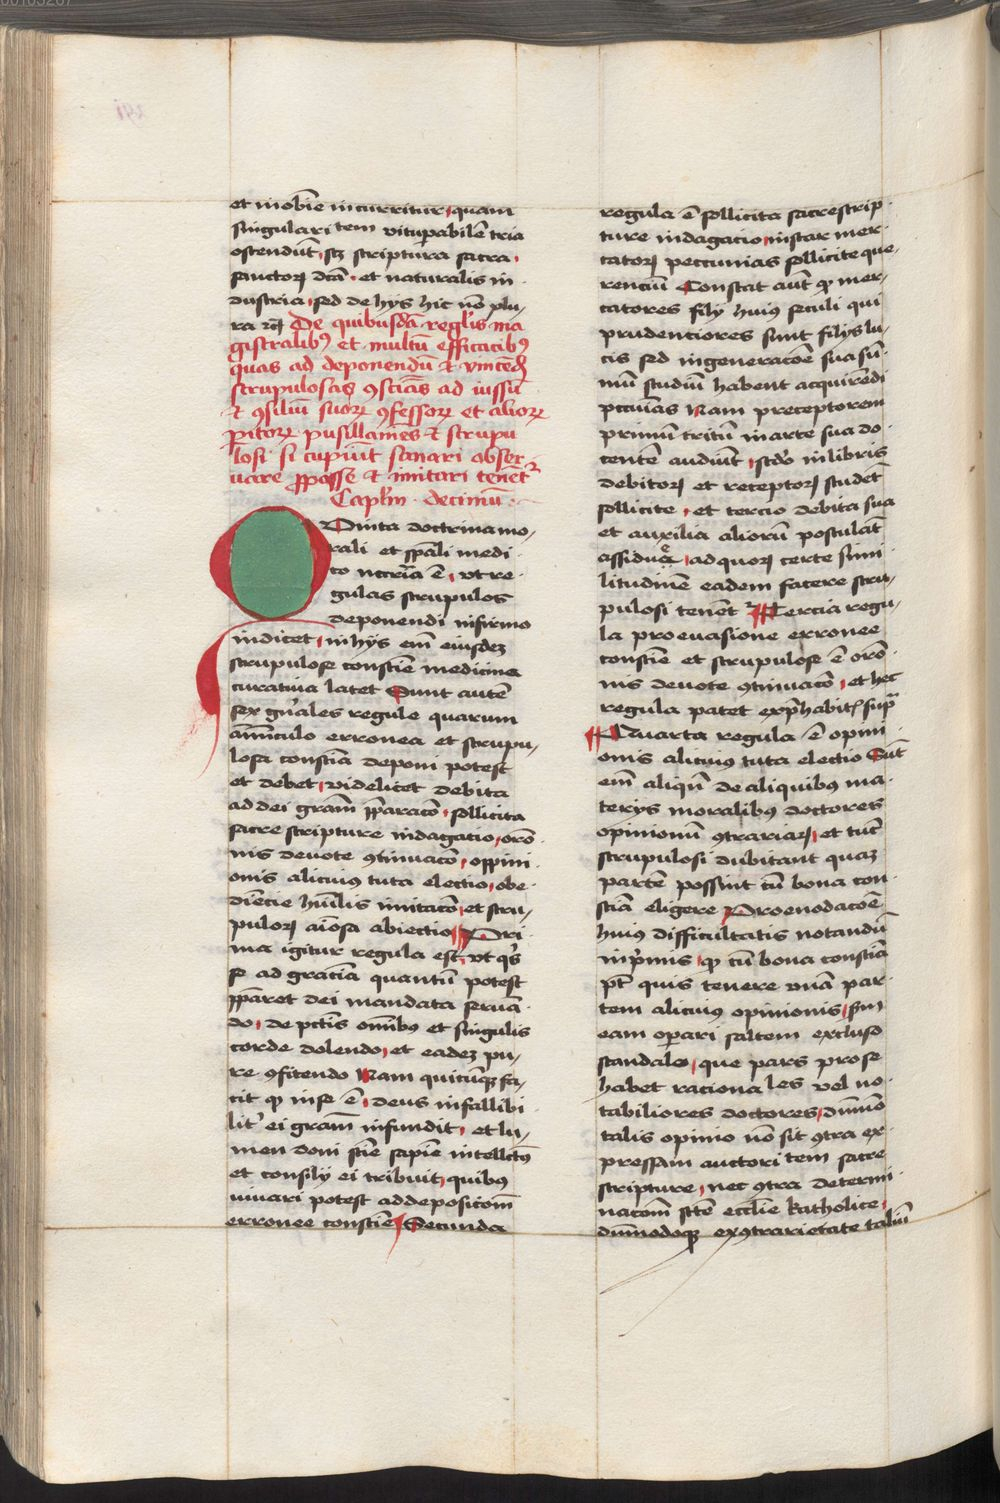 et inobie incurritur quam
singularitem vituperabile tria
ostendunt scz scriptura sacra
sanctorum dcā et naturalis in
dustria sed de hys hic nō plu
ra rc̄ De quibusdā reglis ma
gistralibꝰ et multū efficacibꝰ
quas ad deponendū et vincēd
scrupulosas ꝯsciās ad iussū
et ꝯsiliū suoꝝ ꝯfessoꝝ et alioꝝ
pitoꝝ pusillanimes et scrupu
losi si cupiūt sanari obser
uare ꝓpasse et imitari tenētᷣ
Caplm decimū
Quita doctrina mo
rali et spāli medi
co nccr̄ia ē vt re
gulas scrupulos
deponendi infirmo
indicet in hys em̄ eiusdeꝫ
scrupulose consciē medicina
curatiua latet Sunt autē
sex gn̄ales regule quarum
amīculo erronea et scrupu
losa conscīa deponi potest
et debet videlicet debita
ad dei gram̄ p̄paracō sollicita
sacre scripture indagatio orō
nis deuote ꝯtinuacō oppini
onis alicuius tuta electio obe
diēcie hūilis imitacō et scru
puloꝝ aīosa abiectio Pri
ma igitur regula est vt qͥs
se ad graciā quantū potest
p̄paret dei mandata seruā
do de pctīs omībꝰ et singulis
corde dolendo et eadeꝫ pu
re ꝯfitendo Nam quicūqꝫ fa
cit qꝫ in se ē deus infallibi
litᷣ ei gram̄ infundit et lu
men doni sciē sapiē intellctꝰ
et consily ei tribuit quibus
iuuari potest ad deposicōm
erronee consciē Secunda
regula ē sollicita sacre scrip
ture indagacio instar mer
catoꝝ peccunias sollicite que
renciū Constat aūt ꝙ mer
catores fily huiꝰ seculi qui
prudenciores sunt filys lu
cis sed in generacōe sua sū
mū studiū habent acquirēdi
pccuīas Nam preceptorem
primū tritū in arte sua do
centē audiūt scdō in libris
debitoꝝ et receptoꝝ studēt
sollicite et tercio debita sua
et auxilia aliorū postulāt
assidue ad quoꝝ certe simi
litudinē eadem facere scru
pulosi tenētᷣ Tercia regu
la pro euasione erronee
consciē et scrupulose ē orō
nis deuote ꝯtinuacō et hec
regula patet ex p̄habitis supra
Quarta regula ē opini
onis alicuiꝰ tuta electio Sūt
em̄ aliqn̄ de aliquibꝰ ma
terys moralibꝰ doctores
opinionū ꝯtrariaꝝ et tūc
scrupulosi dubitant quaꝫ
partē possint cū bona con
sciā eligere Pro enodacōe
huiꝰ difficultatis notandū
inp̄mis ꝙ cū bona consciā
pt̄ quis tenere vnā par
tem alicuiꝰ opinionis sm̄
eam operari saltem excluso
scandalo que pars pro se
habet racionales vel no
tabiliores doctores dūmō
talis opinio nō sit ꝯtra ex
pressam auctoritem sacre
scripture nec ꝯtra determi
nacōm scē ecclīe katholice
dūmodoqꝫ ex ꝯtrarietate taliū